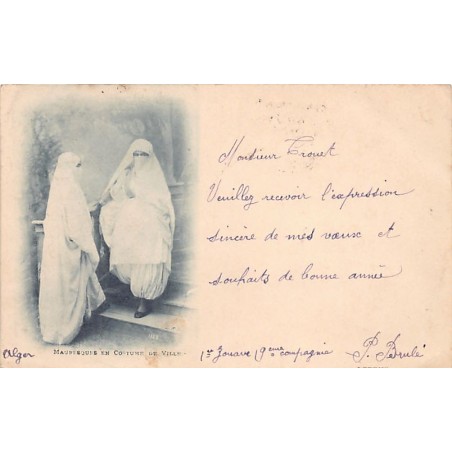 Monsieur Trouet
Veuillez recevoir l'expression
sincère de mes vœux et
souhaits de bonne année
MAURESQUES EN COSTUME DE VILLE
Alger
1er Zouave 19ème compagnie P. Brulé